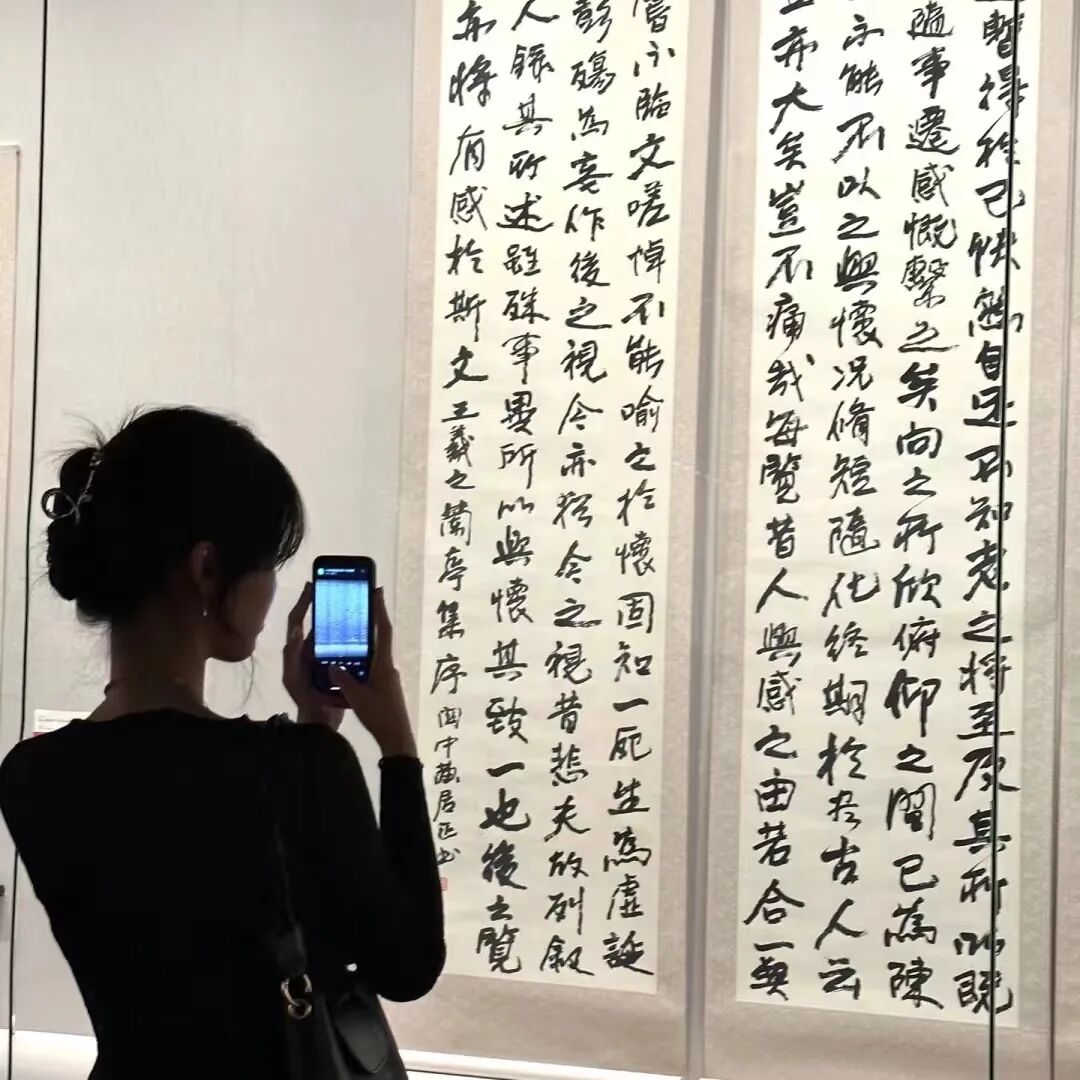 暫得於己怏然自足不知老之將至及其所以既
隨事遷感慨繫之矣向之所欣俯仰之間已為陳
不能不以之興懷況脩短隨化終期於盡古人云
亦大矣豈不痛哉每覽昔人興感之由若合一契
嘗不臨文嗟悼不能喻之於懷固知一死生為虛誕
彭殤為妄作後之視今亦猶今之視昔悲夫故列敘
人錄其所述雖殊事異所以興懷其致一也後之覽
亦將有感於斯文 王羲之蘭亭集序 中居正書